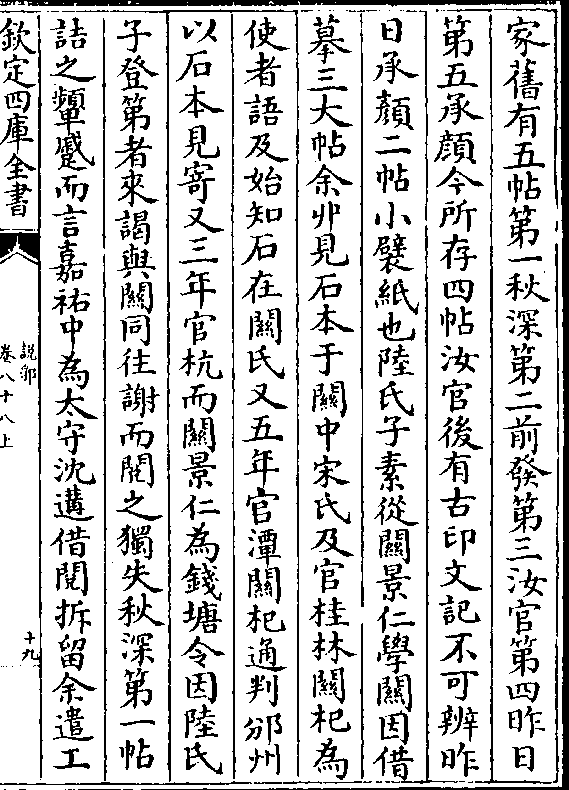 家舊有五帖第一秋深第二前發第三汝官第四昨日
第五承顔今所存四帖汝官後有古印文記不可辨昨
日承顔二帖小襞紙也陸氏子素從關景仁學關因借
摹三大帖余丱見石本于關中宋氏及官桂林關杞為
使者語及始知石在關氏又五年官潭關杞通判邠州
以石本見寄又三年官杭而關景仁為錢塘令因陸氏
子登第者來謁與關同往謝而閱之獨失秋深第一帖
詰之顰蹙而言嘉祐中為太守沈遘借閱拆留余遣工
欽定四庫全書
説郛
卷八十八上
十九